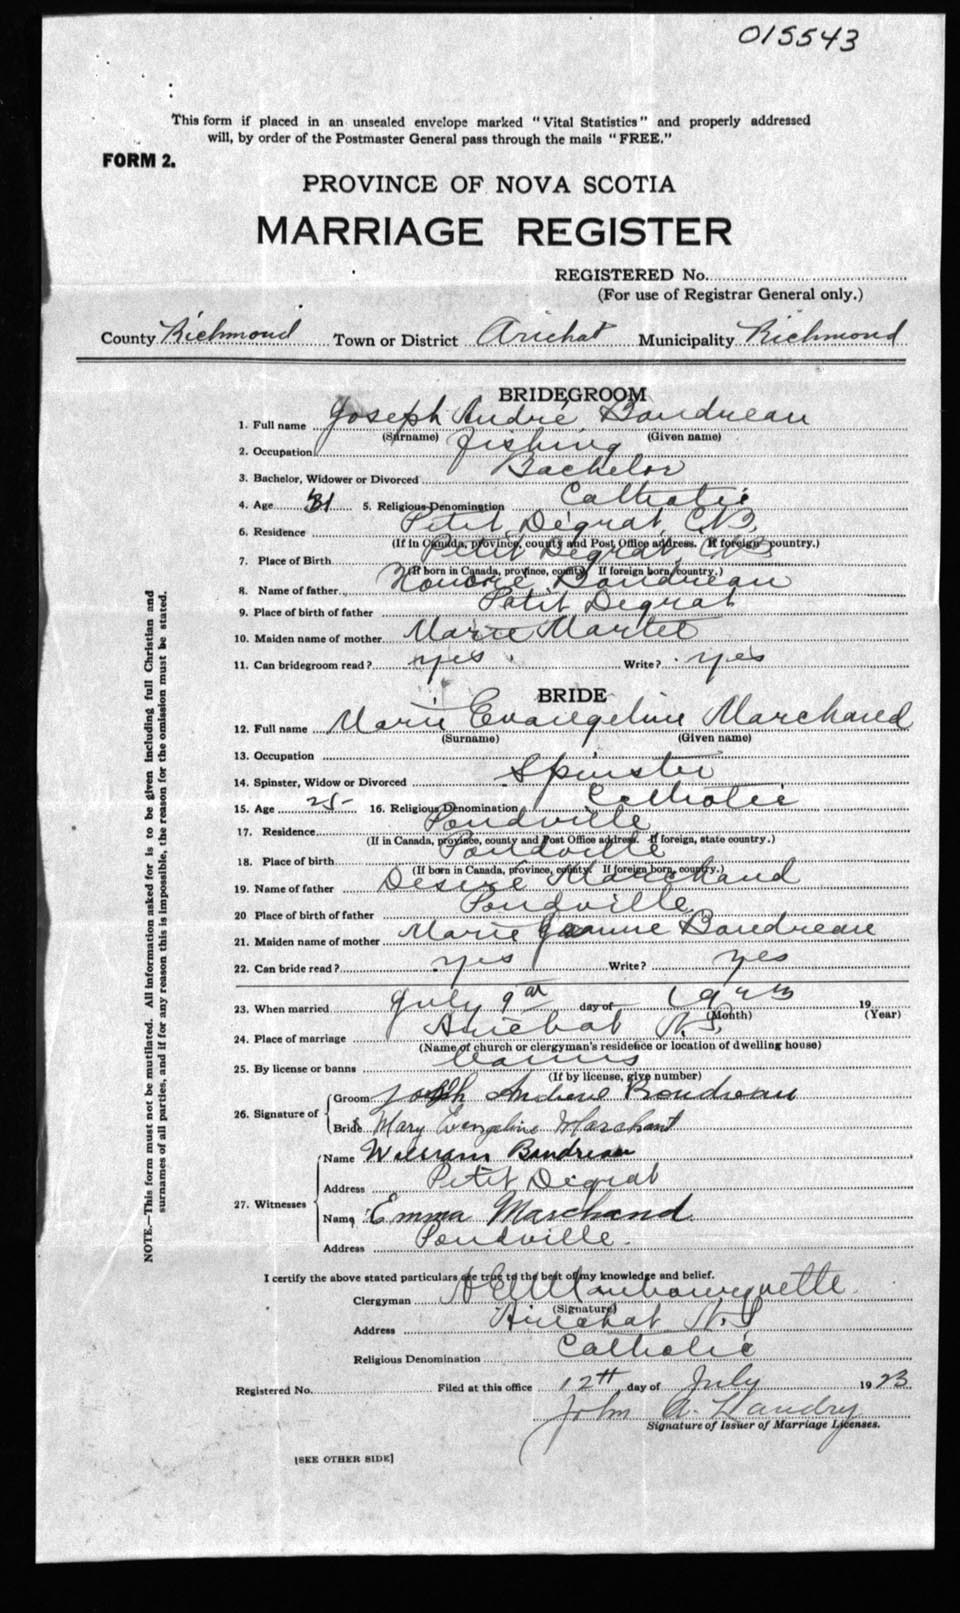 015543
This form if placed in an unsealed envelope marked "Vital Statistics" and properly addressed
will, by order of the Postmaster General pass through the mails "FREE."
FORM 2.
PROVINCE OF NOVA SCOTIA
MARRIAGE REGISTER
REGISTERED No.
(For use of Registrar General only.)
County Richmond Town or District Arichat Municipality Richmond
BRIDEGROOM
1. Full name Joseph André Boudreau
(Surname) (Given name)
2. Occupation Fishing
3. Bachelor, Widower or Divorced Bachelor
4. Age 31 5. Religious Denomination Catholic
6. Residence Petit Degrat C.B.
(If in Canada, province, county and Post Office address. If foreign country.)
7. Place of Birth Petit Degrat C.B.
(If born in Canada, province, county. If foreign born, country.)
8. Name of father Honoré Boudreau
9. Place of birth of father Petit Degrat
10. Maiden name of mother Marie Martel
11. Can bridegroom read? yes Write? yes
BRIDE
12. Full name Marie Evangeline Marchand
(Surname) (Given name)
13. Occupation
14. Spinster, Widow or Divorced Spinster
15. Age 25 16. Religious Denomination Catholic
17. Residence Pondville
(If in Canada, province, county and Post Office address. If foreign, state country.)
18. Place of birth Pondville
(If born in Canada, province, county. If foreign born, country.)
19. Name of father Desiré Marchand
20 Place of birth of father Pondville
21. Maiden name of mother Marie Jeanne Boudreau
22. Can bride read? yes Write? yes
23. When married July 9th day of 1923 19
(Month) (Year)
24. Place of marriage Arichat N.S.
(Name of church or clergyman's residence or location of dwelling house)
25. By license or banns Banns
(If by license, give number)
26. Signature of
Groom Joseph Andrew Boudreau
Bride Mary Evengeline Marchant
27. Witnesses
Name William Boudreau
Address Petit Degrat
Name Emma Marchand
Address Pondville
I certify the above stated particulars are true to the best of my knowledge and belief.
Clergyman A E Mombourquette
(Signature)
Address Arichat N.S
Religious Denomination Catholic
Registered No. Filed at this office 12th day of July 1923
John A. Landry
Signature of Issuer of Marriage Licenses.
[SEE OTHER SIDE]
NOTE.—This form must not be mutilated. All information asked for is to be given including full Christian and
surnames of all parties, and if for any reason this is impossible, the reason for the omission must be stated.